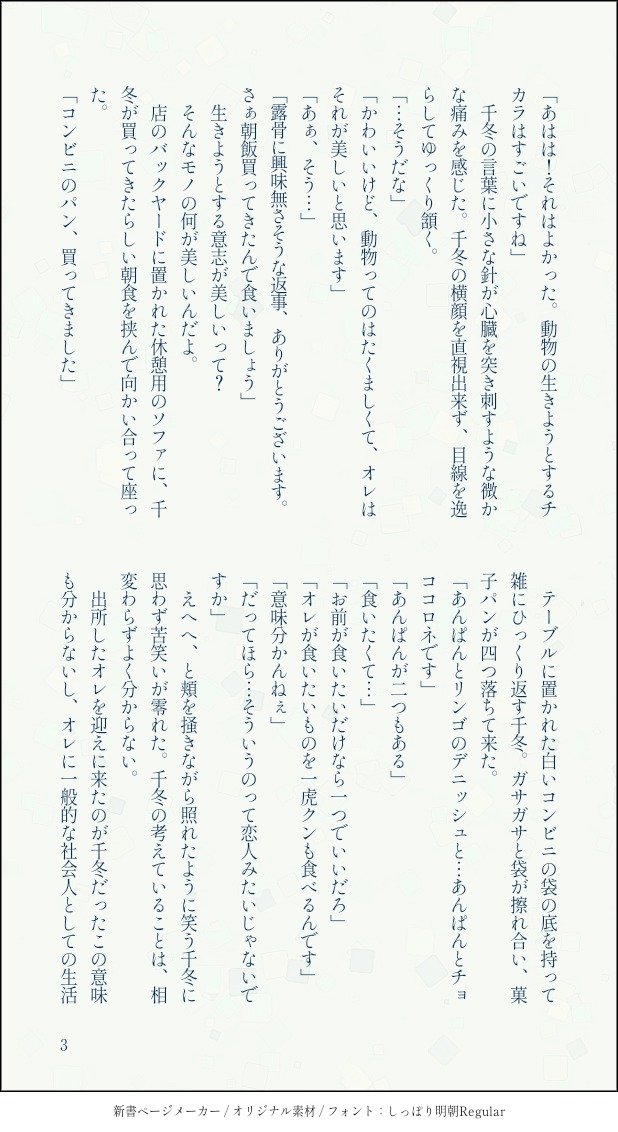 「あはは！それはよかった。動物の生きようとするチ
カラはすごいですね」
　千冬の言葉に小さな針が心臓を突き刺すような微か
な痛みを感じた。千冬の横顔を直視出来ず、目線を逸
らしてゆっくり頷く。
「…そうだな」
「かわいいけど、動物ってのはたくましくて、オレは
それが美しいと思います」
「あぁ、そう…」
「露骨に興味無さそうな返事、ありがとうございます。
さぁ朝飯買ってきたんで食いましょう」
　生きようとする意志が美しいって？
　そんなモノの何が美しいんだよ。
　店のバックヤードに置かれた休憩用のソファに、千
冬が買ってきたらしい朝食を挟んで向かい合って座っ
た。
「コンビニのパン、買ってきました」
　テーブルに置かれた白いコンビニの袋の底を持って
雑にひっくり返す千冬。ガサガサと袋が擦れ合い、菓
子パンが四つ落ちて来た。
「あんぱんとリンゴのデニッシュと…あんぱんとチョ
ココロネです」
「あんぱんが二つもある」
「食いたくて…」
「お前が食いたいだけなら一つでいいだろ」
「オレが食いたいものを一虎クンも食べるんです」
「意味分かんねぇ」
「だってほら…そういうのって恋人みたいじゃないで
すか」
　えへへ、と頬を掻きながら照れたように笑う千冬に
思わず苦笑いが零れた。千冬の考えていることは、相
変わらずよく分からない。
　出所したオレを迎えに来たのが千冬だったこの意味
も分からないし、オレに一般的な社会人としての生活
3
新書ページメーカー / オリジナル素材 / フォント：しっぽり明朝Regular